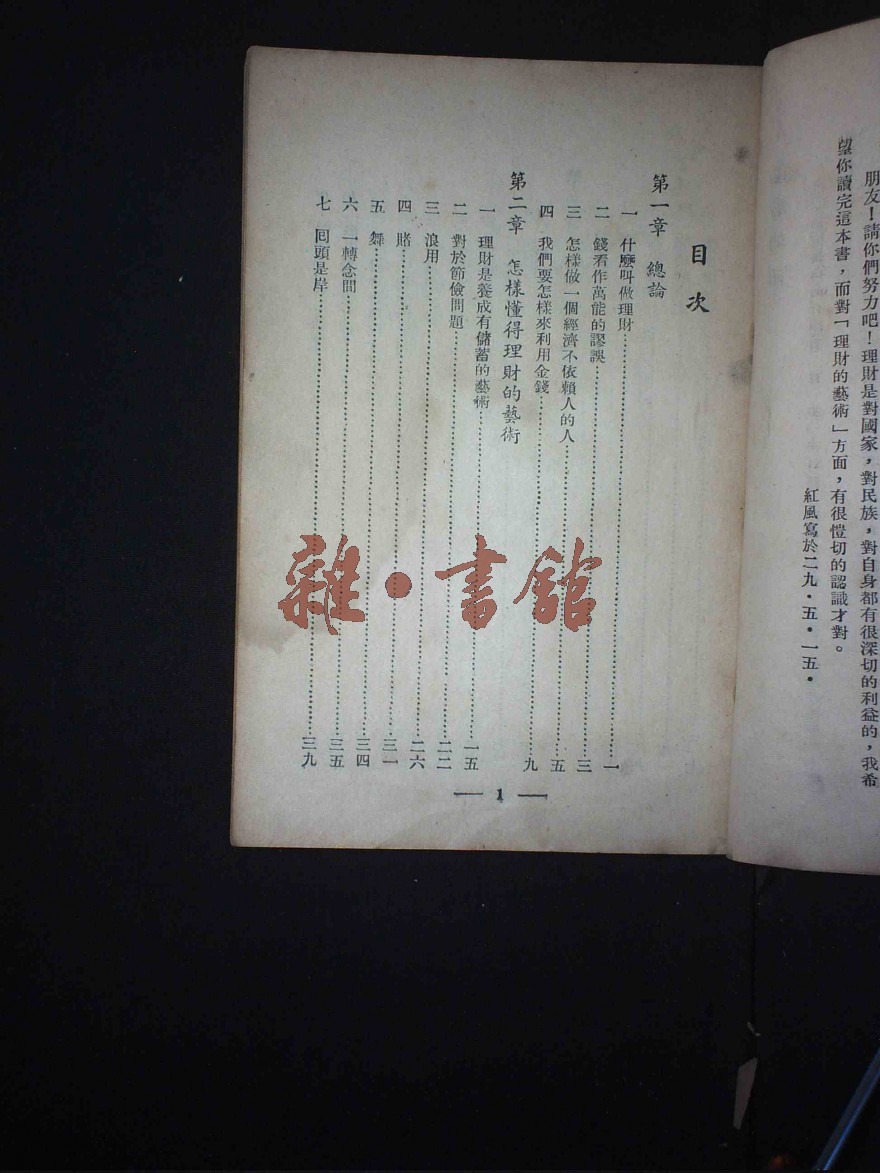 朋友！請你們努力吧！理財是對國家，對民族，對自身都有很深切的利益的，我希
望你讀完這本書，而對「理財的藝術」方面，有很愷切的認識才對。
紅風寫於二九・五・一五・
目次
第一章　總論
一　什麼叫做理財…………一
二　錢看作萬能的謬誤…………三
三　怎樣做一個經濟不依賴人的人…………五
四　我們要怎樣來利用金錢…………九
第二章　怎樣懂得理財的藝術
一　理財是養成有儲蓄的藝術…………一五
二　對於節儉問題…………二二
三　浪用…………二六
四　賭…………三一
五　舞…………三四
六　一轉念間…………三五
七　囘頭是岸…………三九
— 1 —
雜・書館